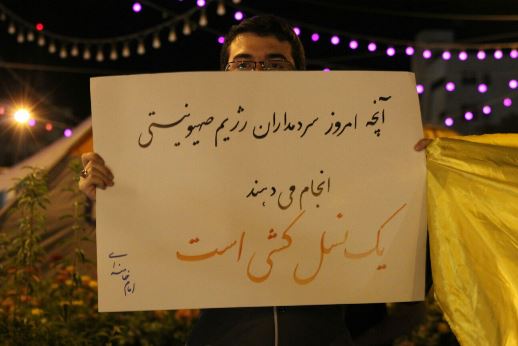 آنچه امروز سردمداران رژیم صهیونیستی
انجام می دهند
یک نسل کشی است
امام خامنه ای